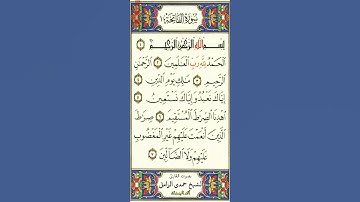 سُورَةُ الْفَاتِحَةِ ١
بِسْمِ اللَّهِ الرَّحْمَٰنِ الرَّحِيمِ ١
الْحَمْدُ لِلَّهِ رَبِّ الْعَالَمِينَ ٢ الرَّحْمَٰنِ
الرَّحِيمِ ٣ مَالِكِ يَوْمِ الدِّينِ ٤
إِيَّاكَ نَعْبُدُ وَإِيَّاكَ نَسْتَعِينُ ٥
اهْدِنَا الصِّرَاطَ الْمُسْتَقِيمَ ٦ صِرَاطَ
الَّذِينَ أَنْعَمْتَ عَلَيْهِمْ غَيْرِ الْمَغْضُوبِ
عَلَيْهِمْ وَلَا الضَّالِّينَ ٧
بصوت القارئ
الشيخ حمدي الزامل